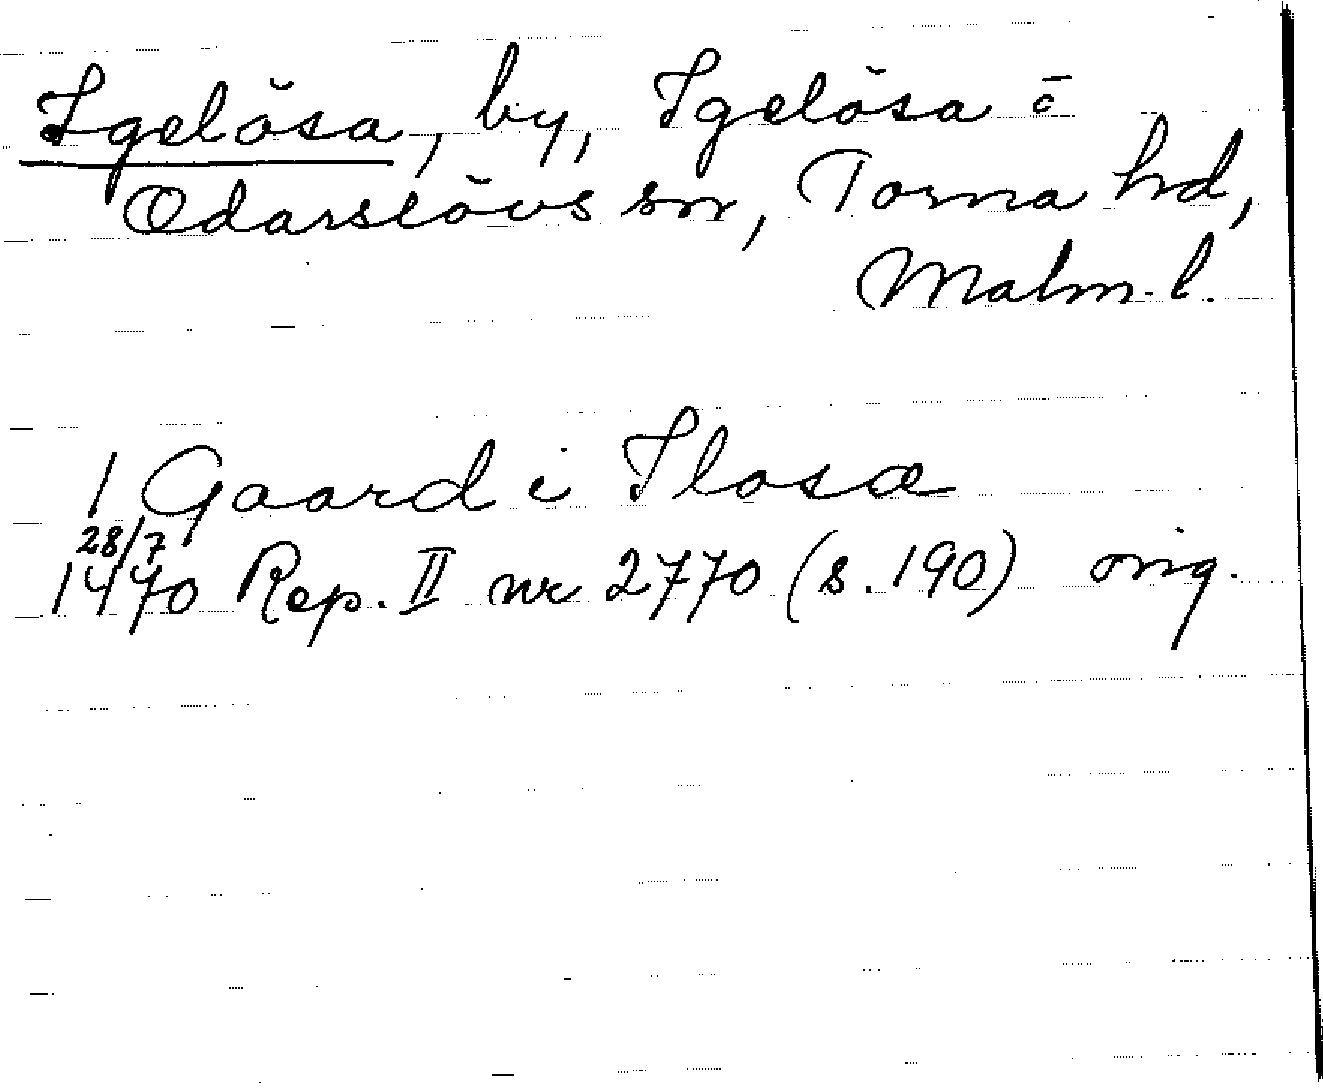 Igelösa, by, Igelösa o̅
Odarslövs snr, Torna hd,
Malm. l.
1 Gaard i Ilosæ
28/7
1470 Rep. II nr 2770 (s. 190) orig.